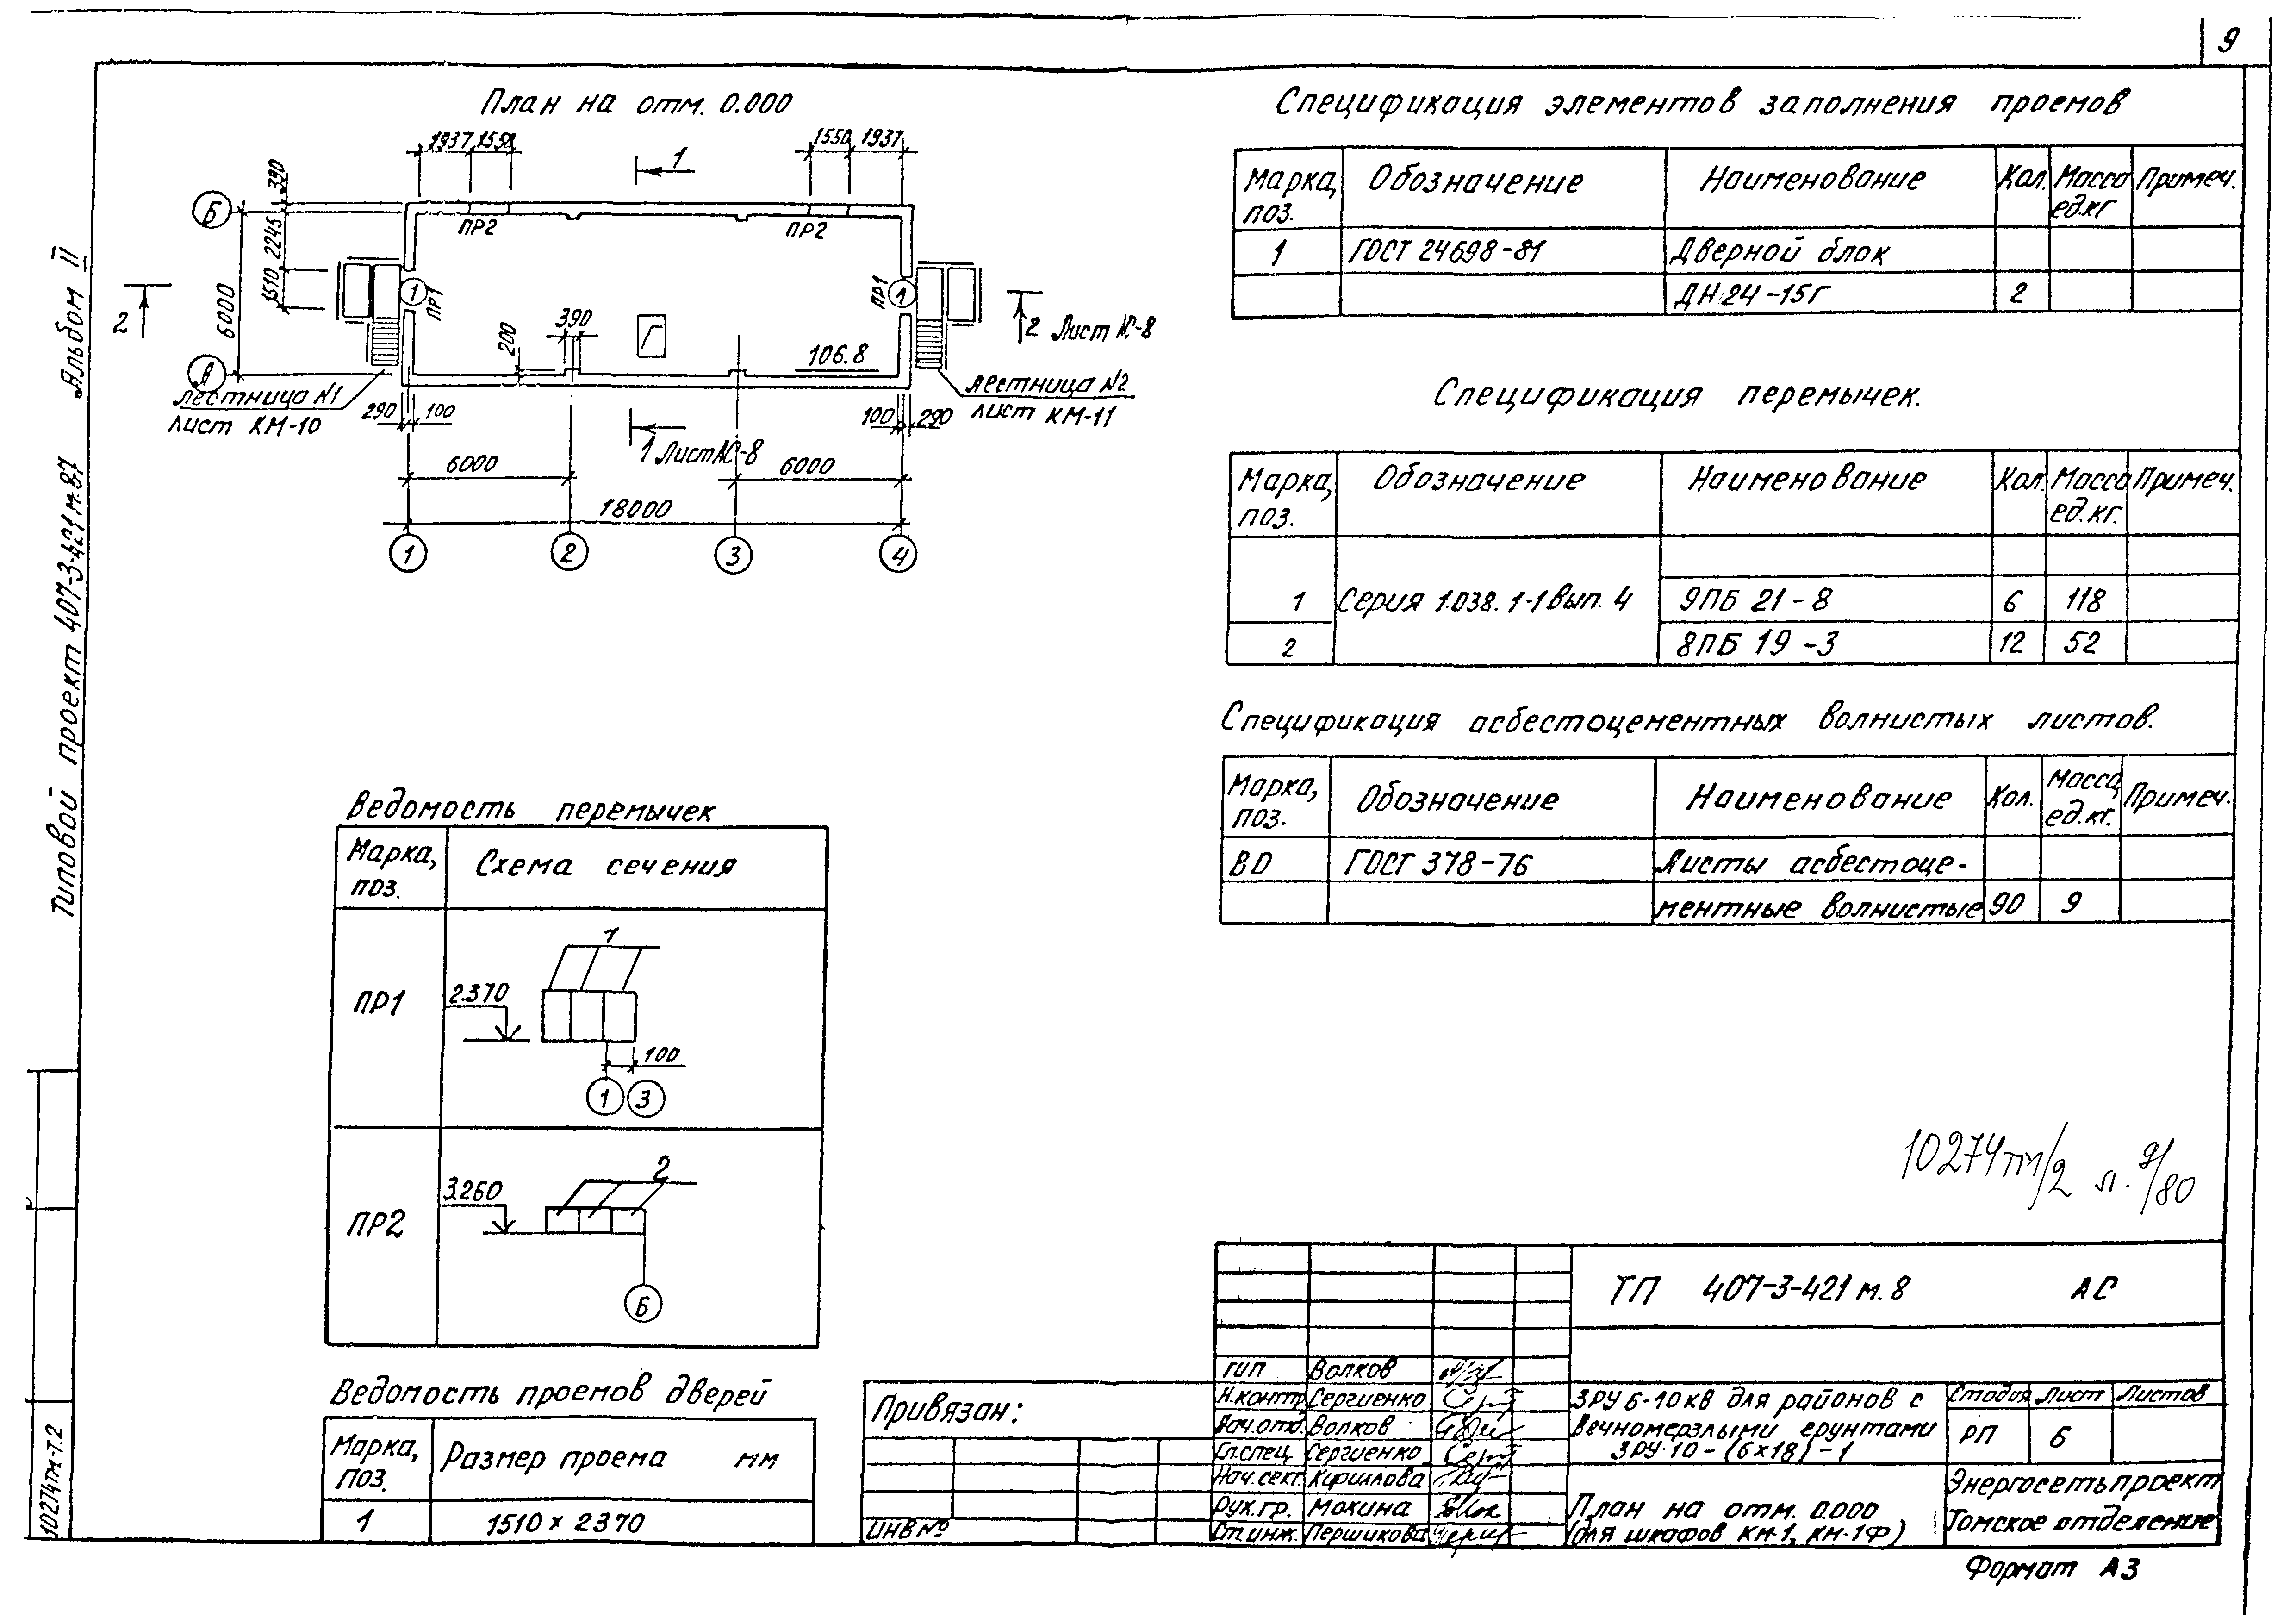 9
План на отм. 0.000
1937 1550
1550 1937
1
390
Б
ПР2
ПР2
2245
1510
6000
1
ПР1
ПР1
1
2
2 Лист АС-8
200
390
Г
106.8
А
лестница N1
Лист КМ-10
лестница N2
лист КМ-11
290
100
100
290
1 Лист АС-8
6000
6000
18000
1
2
3
4
Альбом II
Типовой проект 407-3-421м.87
10274тм-т.2
Спецификация элементов заполнения проемов
Марка, поз. Обозначение Наименование Кол. Масса ед.кг Примеч.
1 ГОСТ 24698-81 Дверной блок
ДН 24-15Г 2
Спецификация перемычек.
Марка, поз. Обозначение Наименование Кол. Масса ед.кг. Примеч.
1 Серия 1.038.1-1 Вып. 4 9ПБ 21-8 6 118
2 8ПБ 19-3 12 52
Спецификация асбестоцементных волнистых листов.
Марка, поз. Обозначение Наименование Кол. Масса ед.кг. Примеч.
ВО ГОСТ 378-76 Листы асбестоце-
ментные волнистые 90 9
Ведомость перемычек
Марка, поз. Схема сечения
ПР1
1
2.370
100
1 3
ПР2
2
3.260
Б
Ведомость проемов дверей
Марка, поз. Размер проема мм
1 1510 х 2370
10274тм/2 л. 9/80
Привязан:
ИНВ №
ТП 407-3-421м.8 АС
ГИП Волков
Н.контр. Сергиенко
Нач.отд. Волков
Гл.спец. Сергиенко
Нач.сект. Кириллова
Рук.гр. Мокина
Ст.инж. Першикова
ЗРУ 6-10кв для районов с
Вечномерзлыми грунтами
ЗРУ-10-(6х18)-1
Стадия Лист Листов
РП 6
План на отм. 0.000
(для шкафов КМ-1, КМ-1Ф)
Энергосетьпроект
Томское отделение
Формат А3